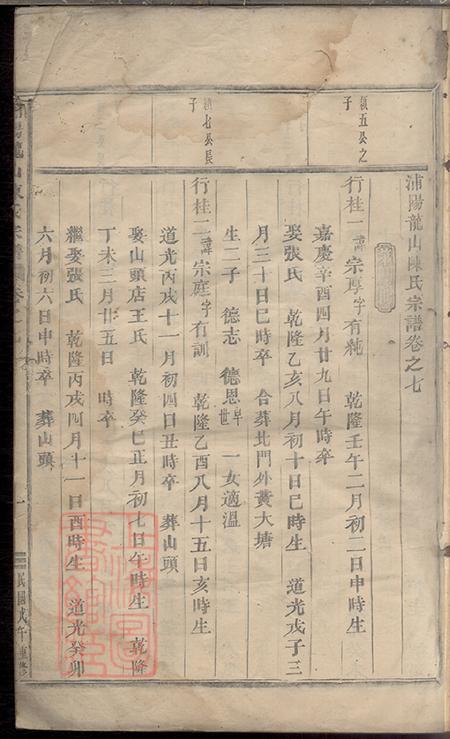 浦陽龍山陳氏宗譜卷之七
顯五公之
子
行桂一諱宗厚字有純　乾隆壬午二月初二日申時生
嘉慶辛酉四月廿九日午時卒
娶張氏　乾隆乙亥八月初十日巳時生　道光戊子三
月三十日巳時卒　合葬北門外黃大塘
生二子　德志　德恩早世　一女適溫
七公長
子
行桂二諱宗庭字有訓　乾隆乙酉八月十五日亥時生
道光丙戌十一月初四日丑時卒　葬山頭
娶山頭店王氏　乾隆癸巳正月初七日午時生　乾隆
丁未三月廿五日　時卒
繼娶張氏　乾隆丙戌四月十一日酉時生　道光癸卯
六月初六日申時卒　葬山頭
陽龍山陳氏宗譜　卷之七
一
民國戊午重修